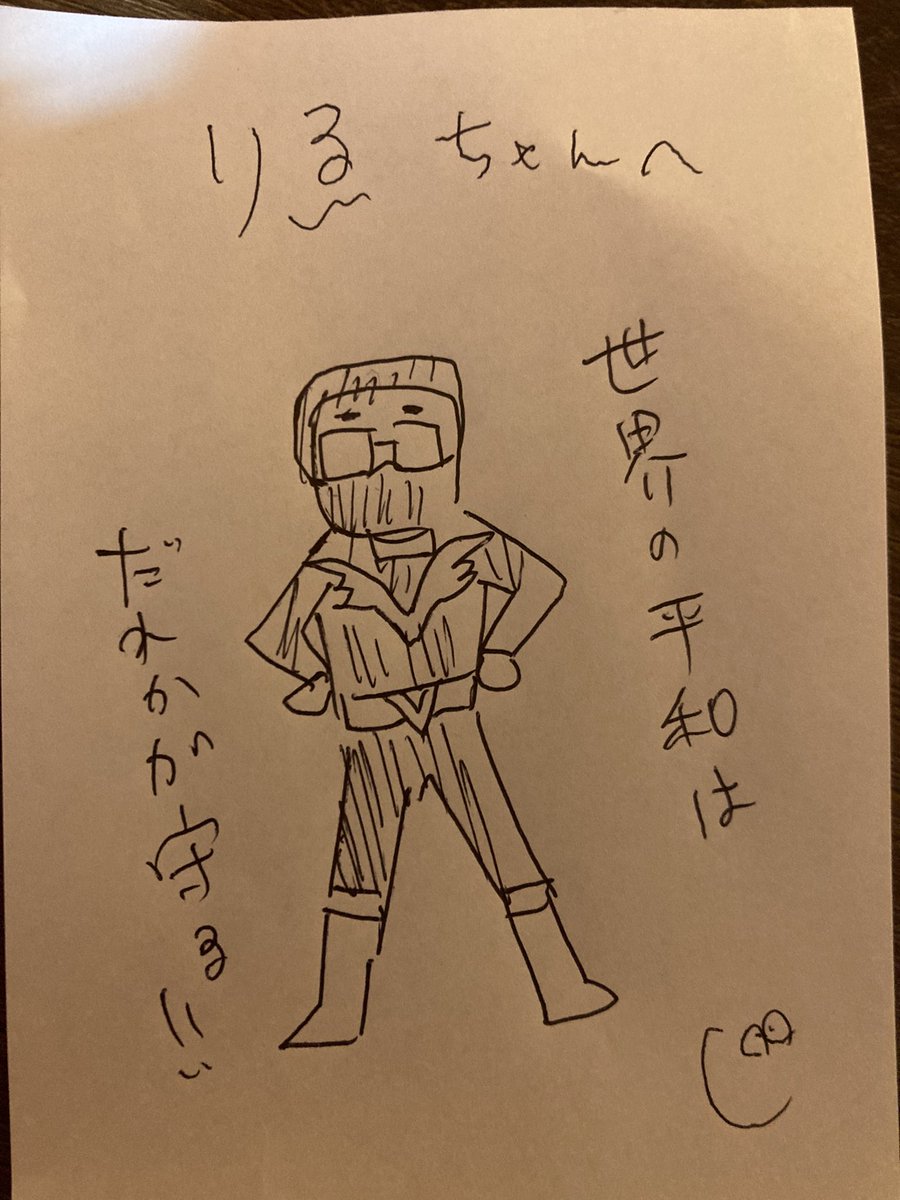 りるちゃんへ
世界の平和は
だれかが守る!!